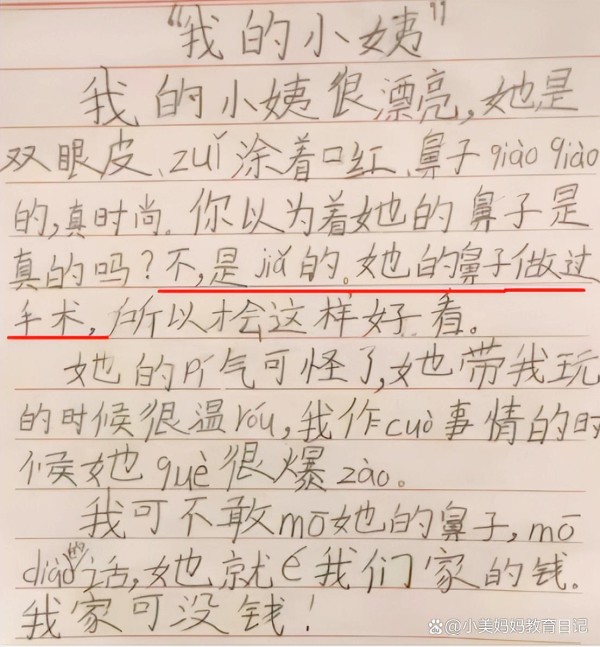 “我的小姨”
我的小姨很漂亮,她是
双眼皮、zuǐ涂着口红、鼻子qiào qiào
的,真时尚。你以为着她的鼻子是
真的吗?不,是jiǎ的。她的鼻子做过
手术,所以才会这样好看。
她的pí气可怪了,她带我玩
的时候很温róu,我作cuò事情的时
候她què很爆zào。
我可不敢mō她的鼻子,mō
diào的话,她就é我们家的钱。
我家可没钱!
@小美妈妈教育日记